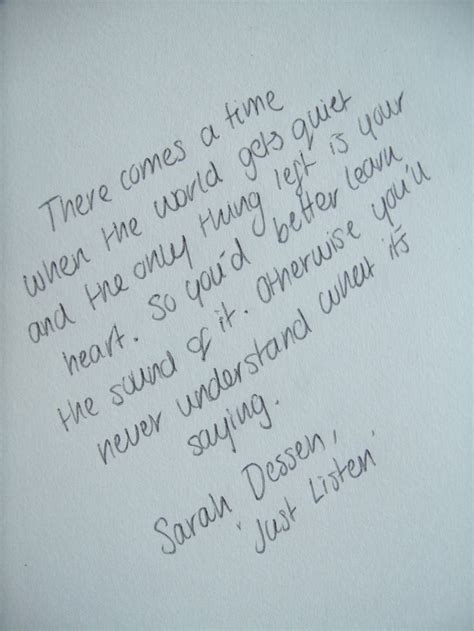 There comes a time
when the world gets quiet
and the only thing left is your
heart. So you'd better learn
the sound of it. Otherwise you'll
never understand what it's
saying.
Sarah Dessen,
'Just Listen'